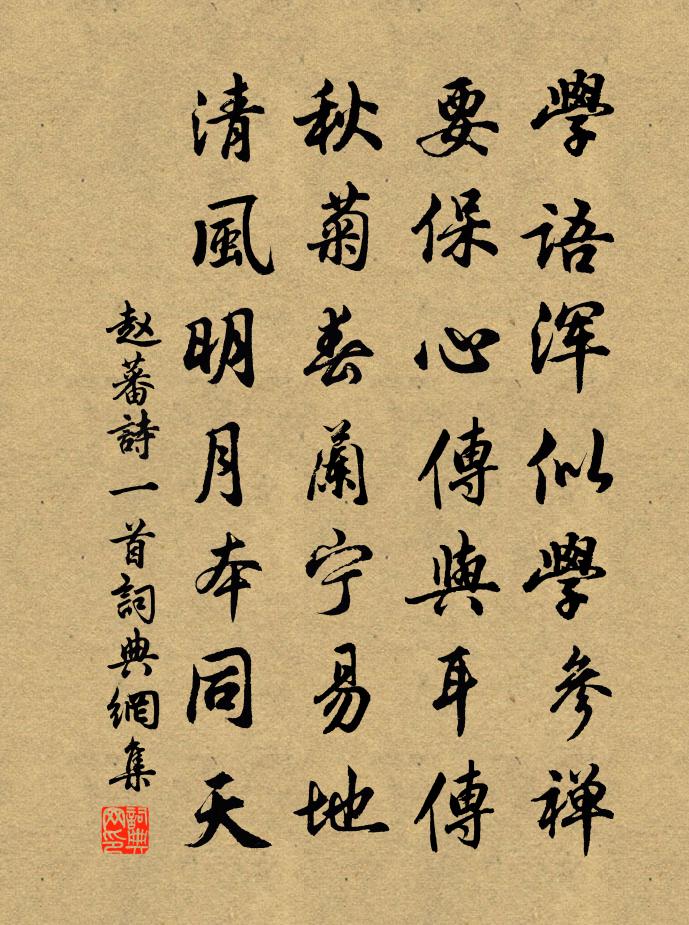 學語渾似學參禅
要保心傳與耳傳
秋菊春蘭宁易地
清風明月本同天
赵蕃詩一首詞典網集
詞典網印